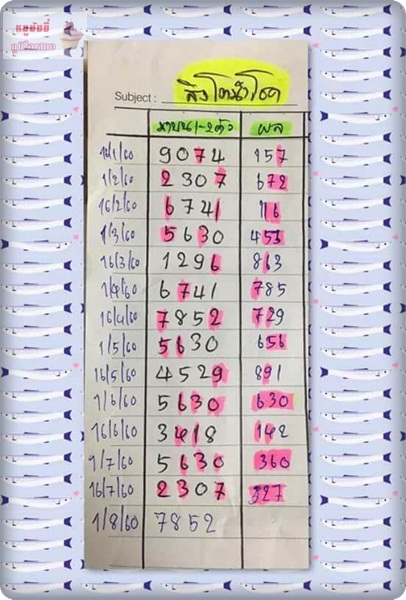 Subject : สิงโตนำโชค
มาบน 1-2ตัว ผล
16/1/60 9074 157
1/2/60 2307 672
16/2/60 6741 116
1/3/60 5630 453
16/3/60 1296 863
1/4/60 6741 785
16/4/60 7852 729
1/5/60 5630 656
16/5/60 4529 891
1/6/60 5630 630
16/6/60 3418 142
1/7/60 5630 360
16/7/60 2307 327
1/8/60 7852